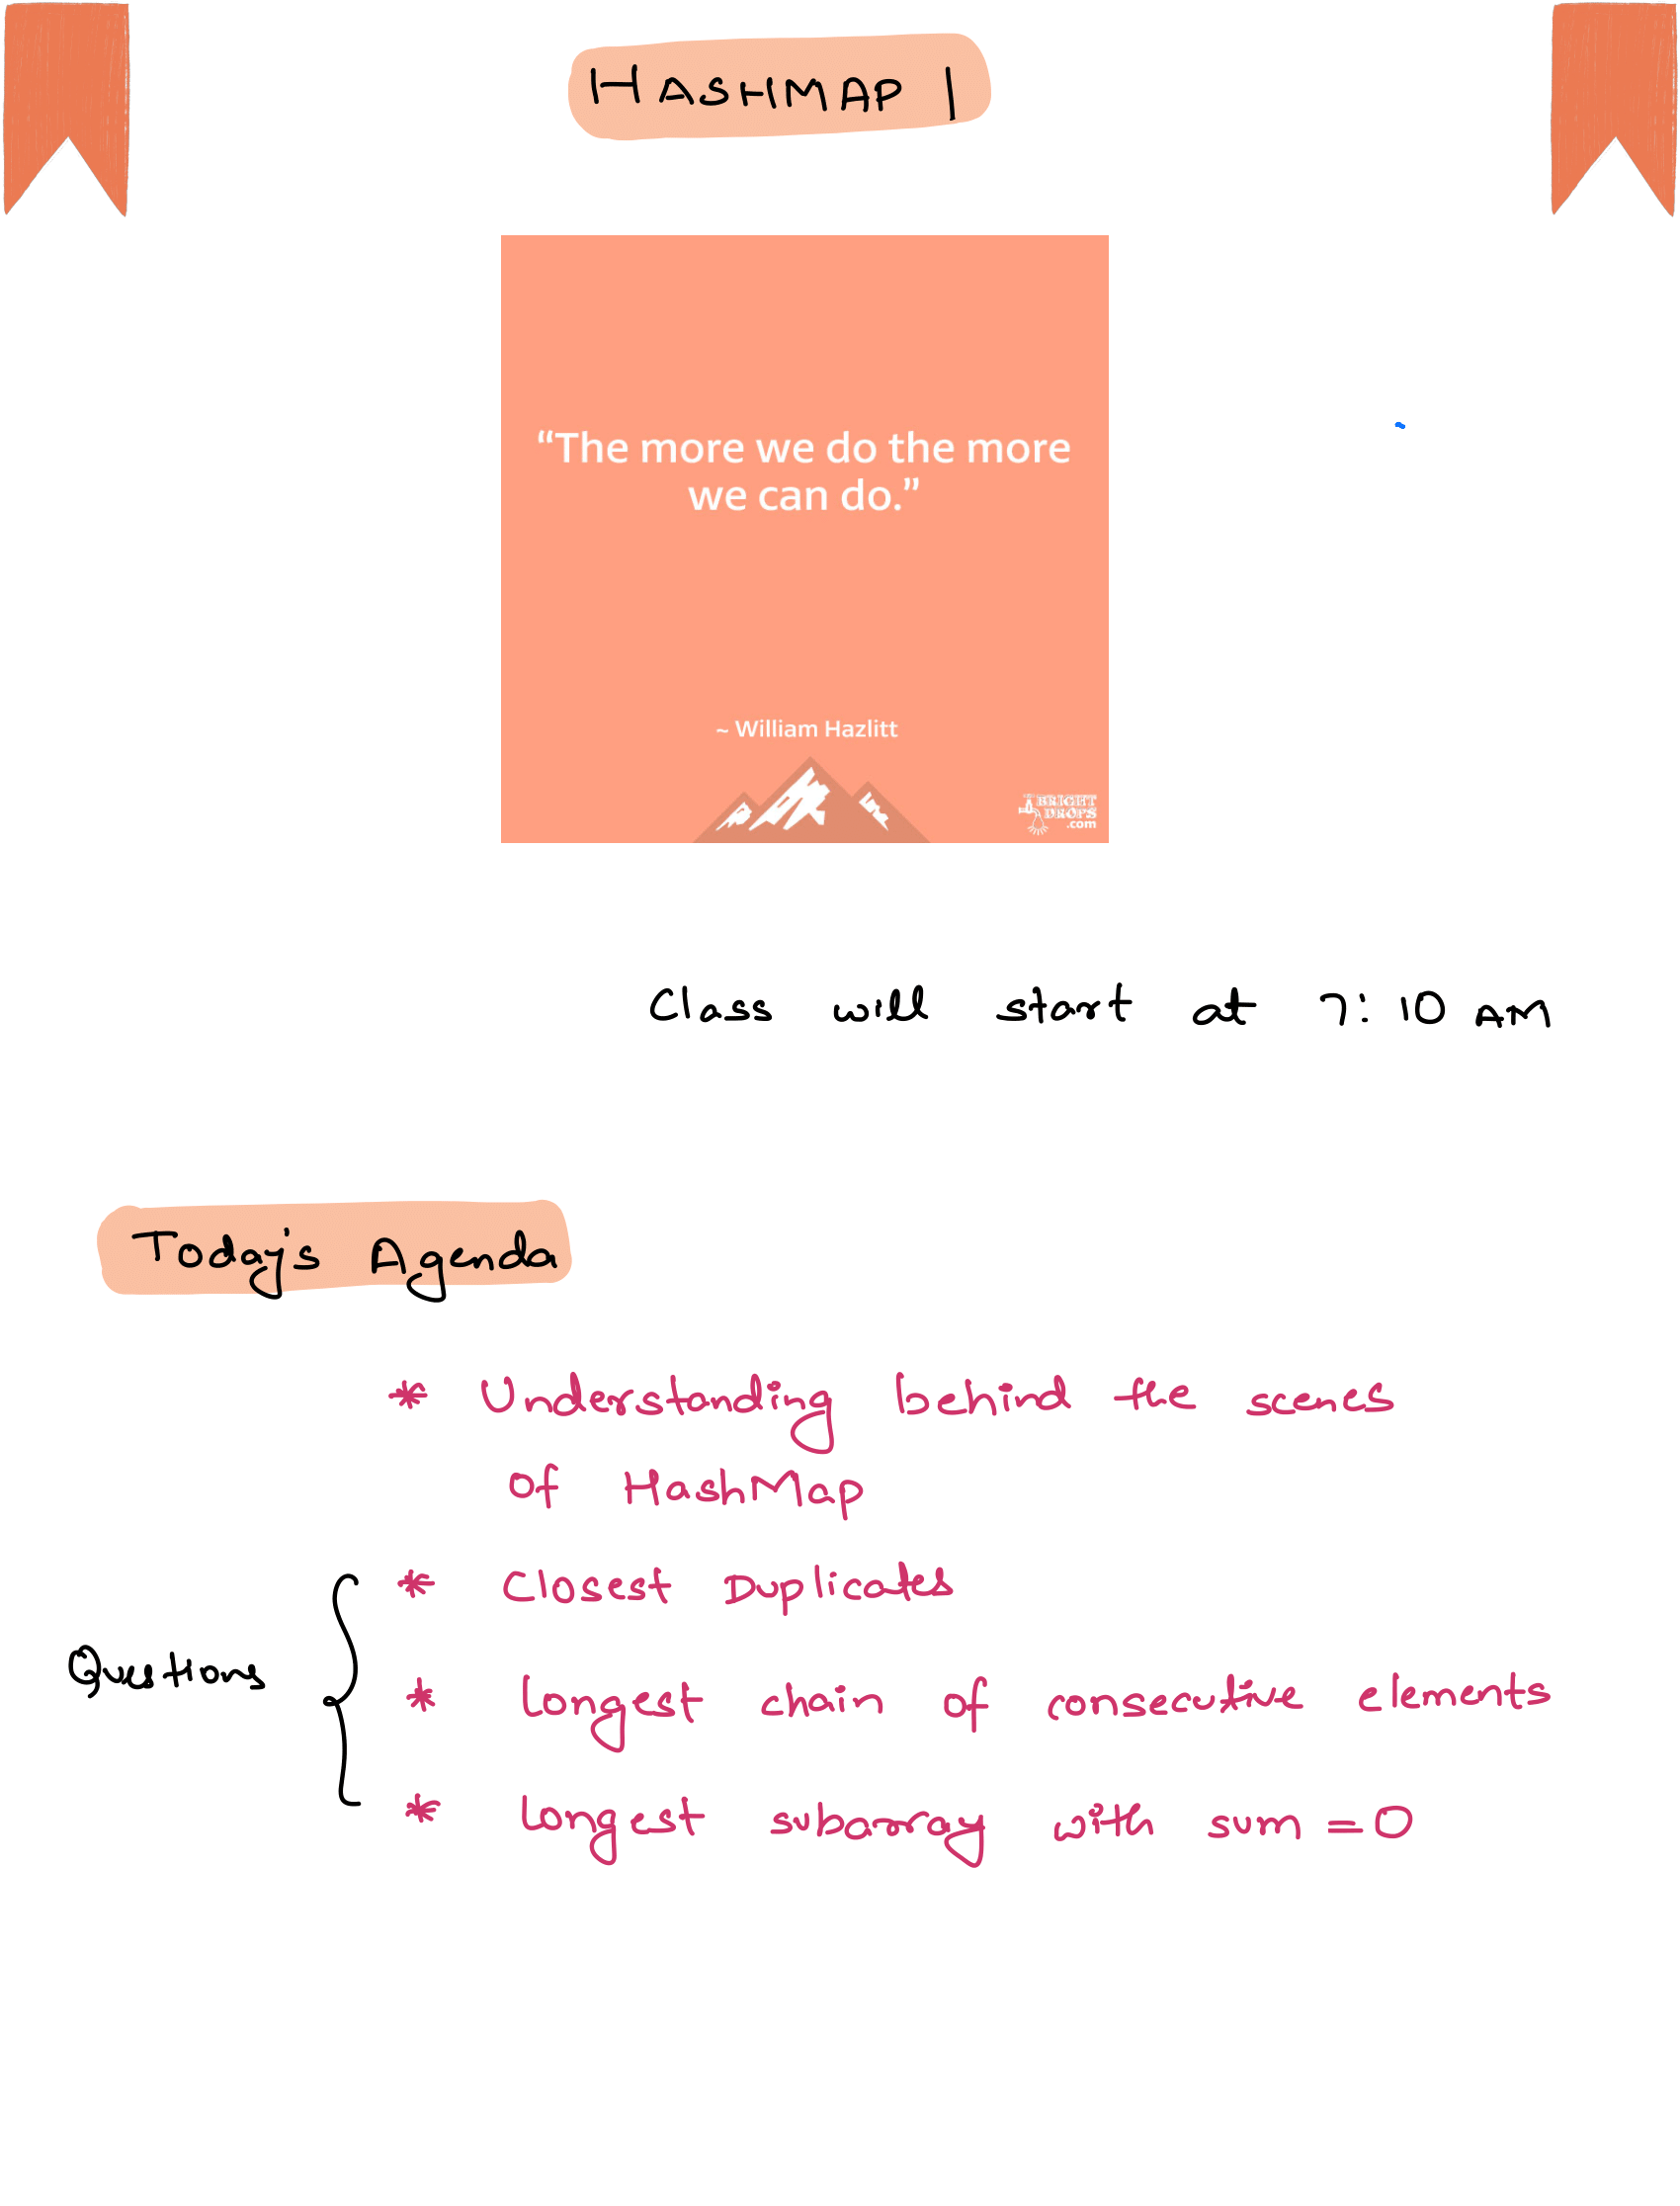 HASHMAP 1
“The more we do the more
we can do.”
~ William Hazlitt
BRIGHT
DROPS
.com
Class will start at 7:10 AM
Today's Agenda
* Understanding behind the scenes
of HashMap
* Closest Duplicates
Questions
* Longest chain of consecutive elements
* Longest subarray with sum = 0